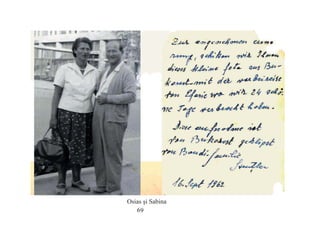 Zur angenehmen Erinne
rung, schiken wir Ihnen
diese kleine foto aus Bu-
karest mit der
von wo wir 24 schö
ne Tage verbracht haben.
Diese aufnahme ist
von Bukarest geknipst
von Bondi familie
16. Sept 1962
Osias și Sabina
69